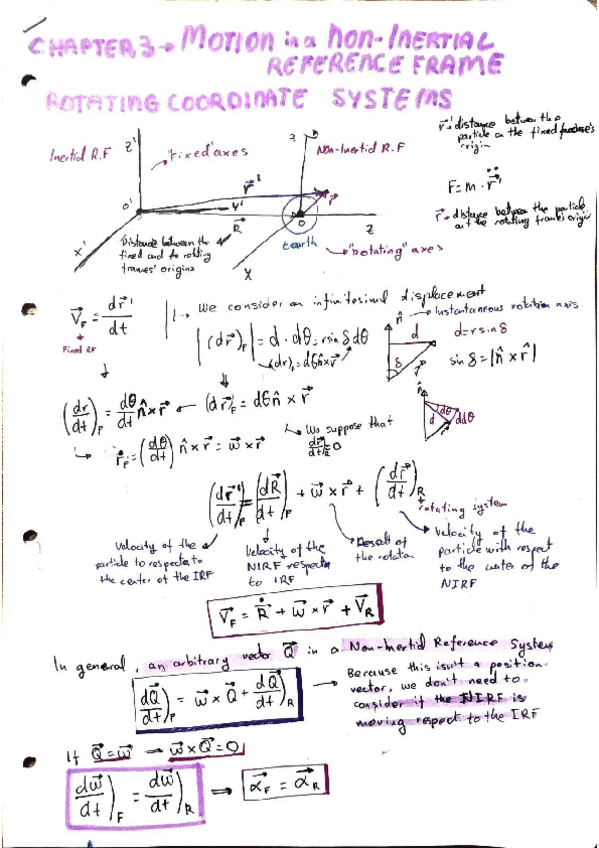 CHAPTER 3 → MOTION in a NON-INERTIAL
REFERENCE FRAME
ROTATING COORDINATE SYSTEMS
Inertial R.F
z'
"Fixed" axes
z
Non-Inertial R.F
r⃗': distance between the
particle and the fixed
origin
F = m · r̈⃗'
r⃗ → distance between the particle
and the rotating frame's origin
r⃗'
r⃗
o'
y'
R⃗
o
z
x'
Distance between the
fixed and the rotating
frames' origins
Earth
"Rotating" axes
x
V⃗_F = dr⃗'/dt
Fixed RF
We consider an infinitesimal displacement
|(dr⃗)_F| = d · dθ = r sin δ dθ
(dr)_F = dθ n̂ × r⃗
n̂ → Instantaneous rotation axis
d
d = r sin δ
δ
sin δ = |n̂ × r̂|
(dr/dt)_F = dθ/dt n̂ × r⃗ ← (dr⃗)_F = dθ n̂ × r⃗
We suppose that
dr⃗/dt)_R = 0
n̂
dθ
d
ddθ
r⃗
ṙ_F = (dθ/dt) n̂ × r⃗ = ω⃗ × r⃗
(dr⃗'/dt)_F = (dR⃗/dt)_F + ω⃗ × r⃗ + (dr⃗/dt)_R
rotating system
Velocity of the
particle to respect to
the center of the IRF
Velocity of the
NIRF respect
to IRF
Result of
the rotation
Velocity of the
particle with respect
to the center of the
NIRF
V⃗_F = Ṙ⃗ + ω⃗ × r⃗ + V⃗_R
In general, an arbitrary vector Q⃗ in a Non-Inertial Reference System
dQ⃗/dt)_F = ω⃗ × Q⃗ + dQ⃗/dt)_R
→ Because this isn't a position
vector, we don't need to
consider if the NIRF is
moving respect to the IRF
If Q⃗ = ω⃗ → ω⃗ × Q⃗ = 0
dω⃗/dt)_F = dω⃗/dt)_R ⇒ α⃗_F = α⃗_R